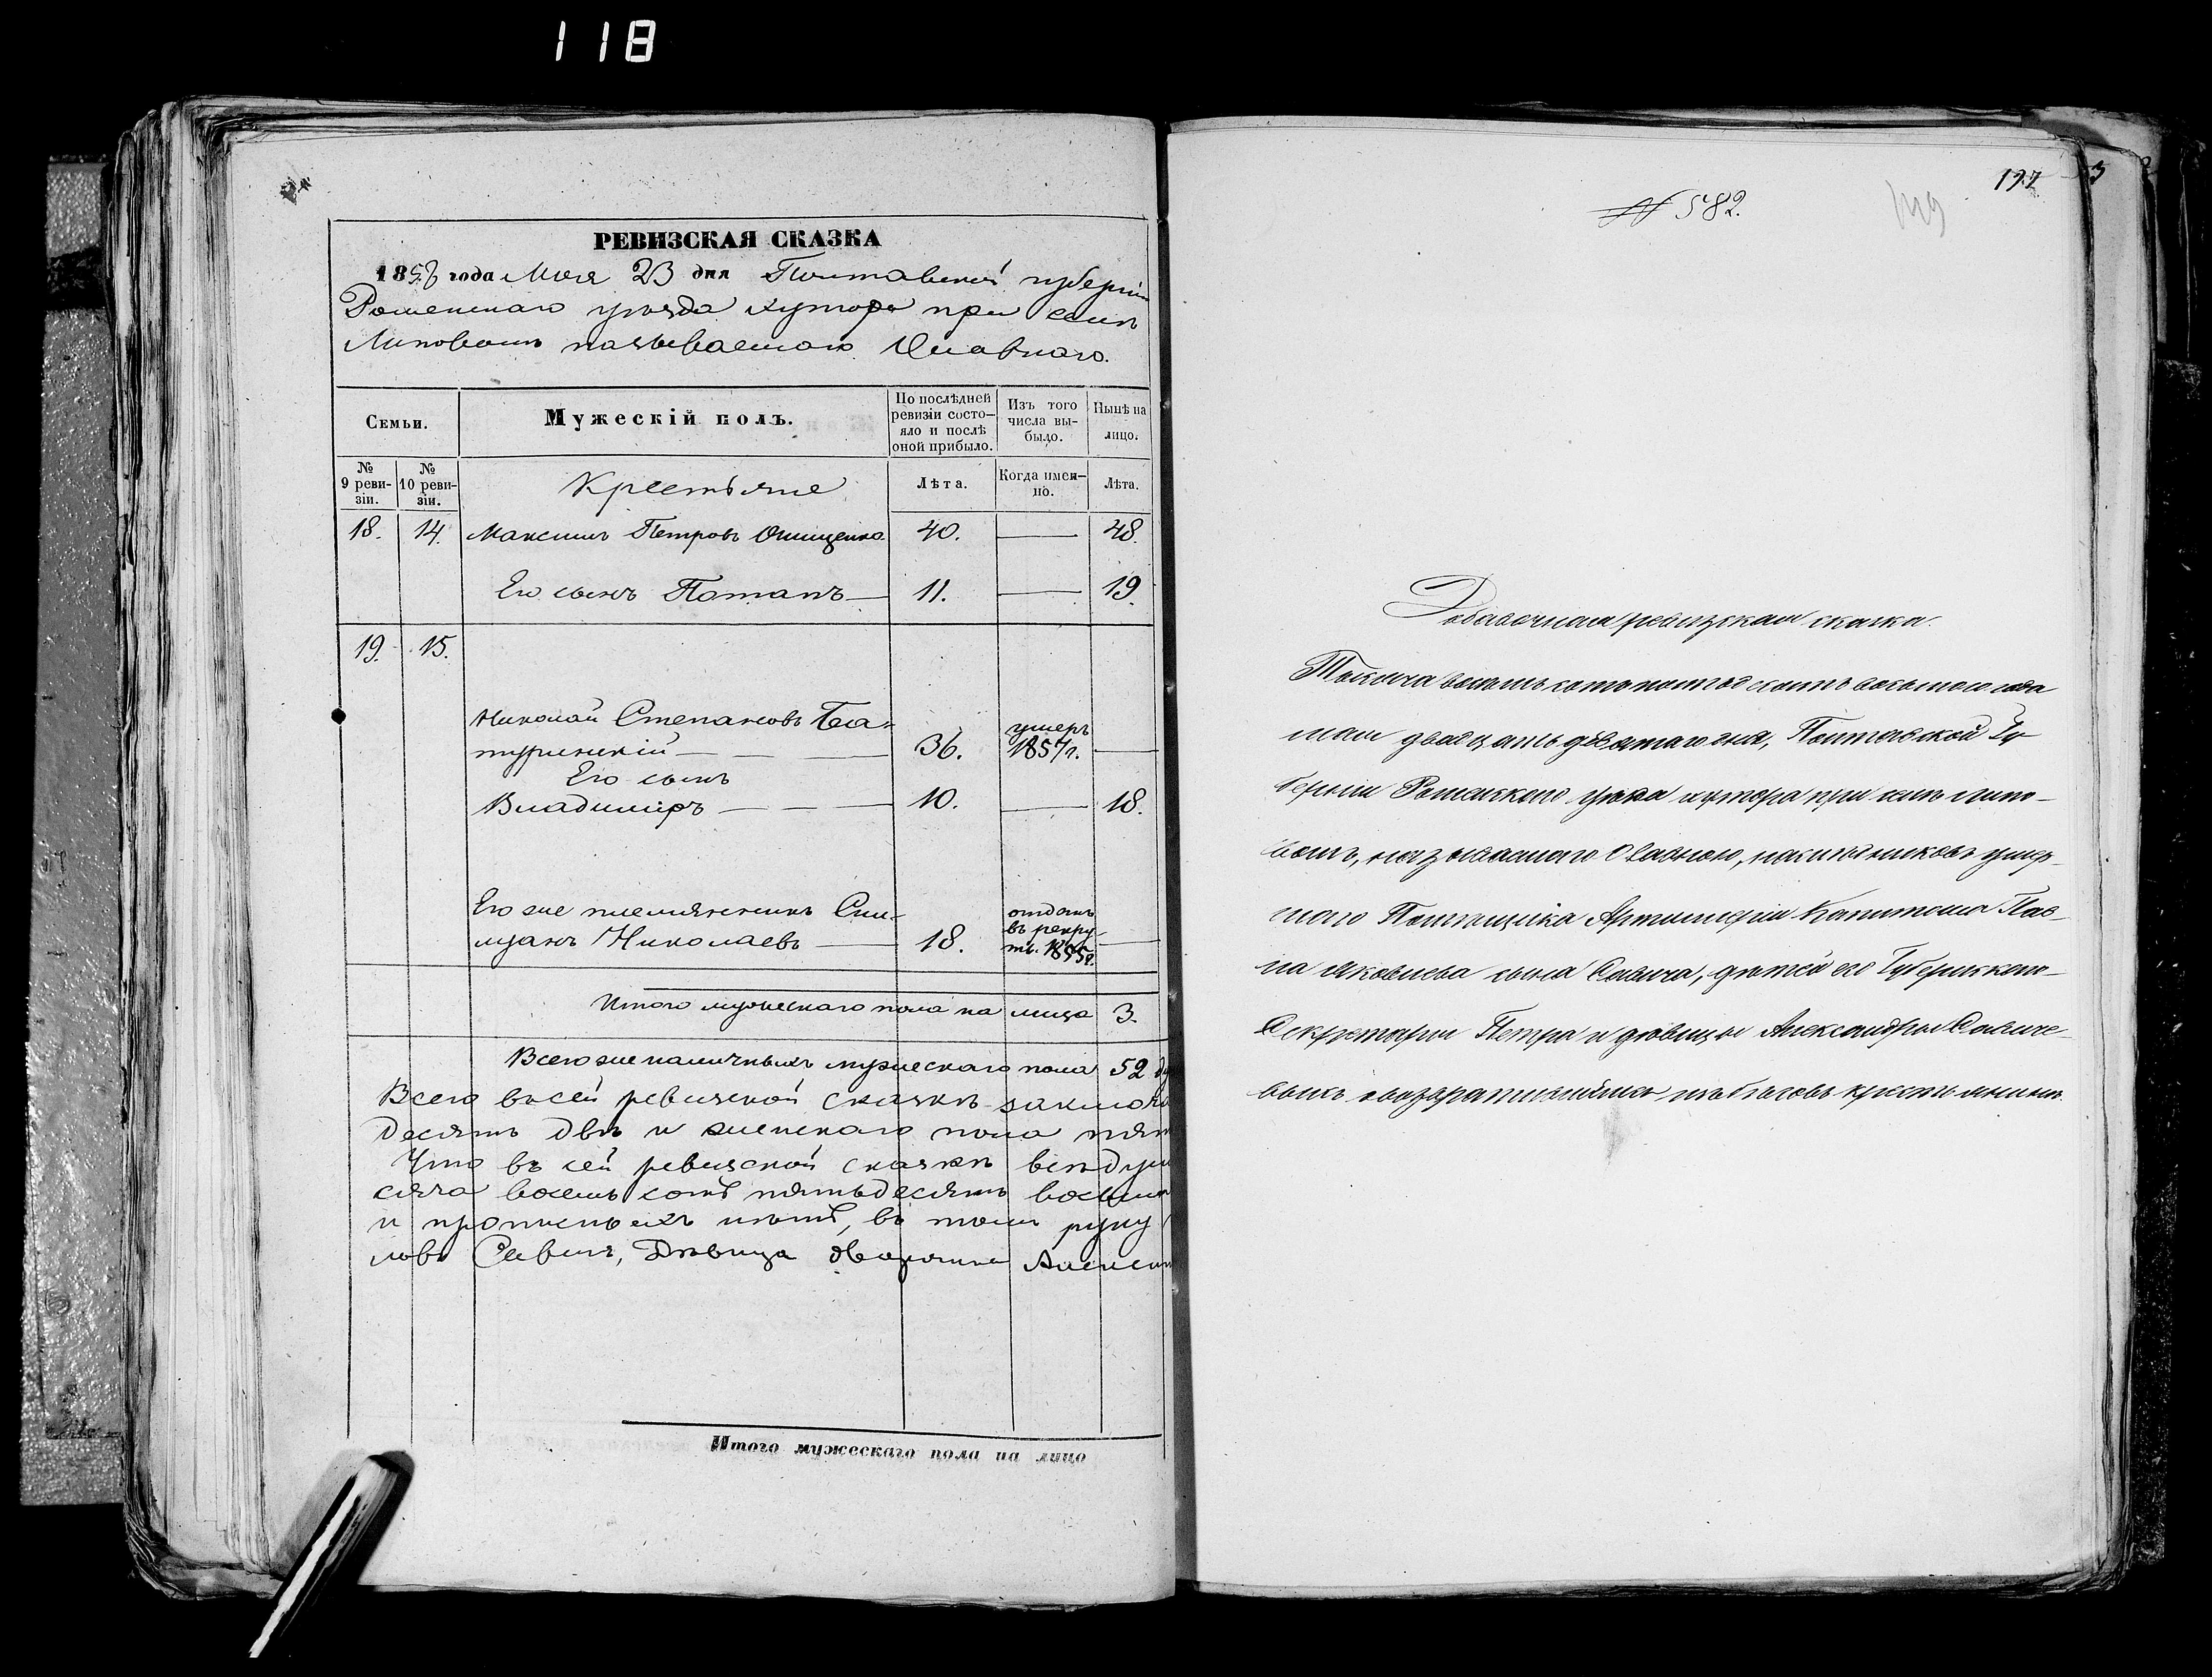 118
РЕВИЗСКАЯ СКАЗКА
1858 года Мая 23 дня Полтавской губерніи
Роменскаго уѣзда хутора при селѣ
Липовомъ называемаго
Семьи.
Мужескій полъ.
По послѣдней ревизіи состо-
яло и послѣ оной прибыло.
Изъ того числа вы-
было.
Нынѣ на лицо.
№ 9 реви-
зіи.
№ 10 реви-
зіи.
Крестьяне
Лѣта.
Когда имен-
но.
Лѣта.
18. 14. Максимъ Петровъ Онищенко 40. — 48.
Его сынъ Потапъ — 11. — 19.
19. 15.
Николай Степановъ Ба-
туринскій — — 36. умеръ 1857 г. —
Его сынъ
Владимиръ — — 10. — 18.
Его же племянникъ
Николаевъ — 18. отданъ въ рекру-
ты. 1855 г. —
Итого мужескаго пола на лицо 3.
Всего же наличныхъ мужескаго пола 52
Всего въ сей ревизской сказкѣ
десятъ двѣ и женскаго пола
Что въ сей ревизской сказкѣ всѣ
сяча восемь сотъ пятьдесятъ
и прописныхъ нѣтъ, въ томъ руку
ловъ Савичъ, Дѣвица дворянка
Итого мужескаго пола на лицо
№ 582.
119
Добавочная ревизская сказка.
Тысяча восемь сотъ пятьдесятъ восьмого года
мая двадцать девятаго дня, Полтавской Гу-
берніи Роменскаго уѣзда хутора при селѣ Липо-
вомъ, называемаго наслѣдниковъ умер-
шаго Помѣщика Артиллеріи Капитана Пав-
ла Яковлева сына Савича, дѣтей его Губернскаго
Секретаря Петра и дѣвицы Александры Савиче-
выхъ о возвратившемся изъ бѣговъ крестьянинѣ.